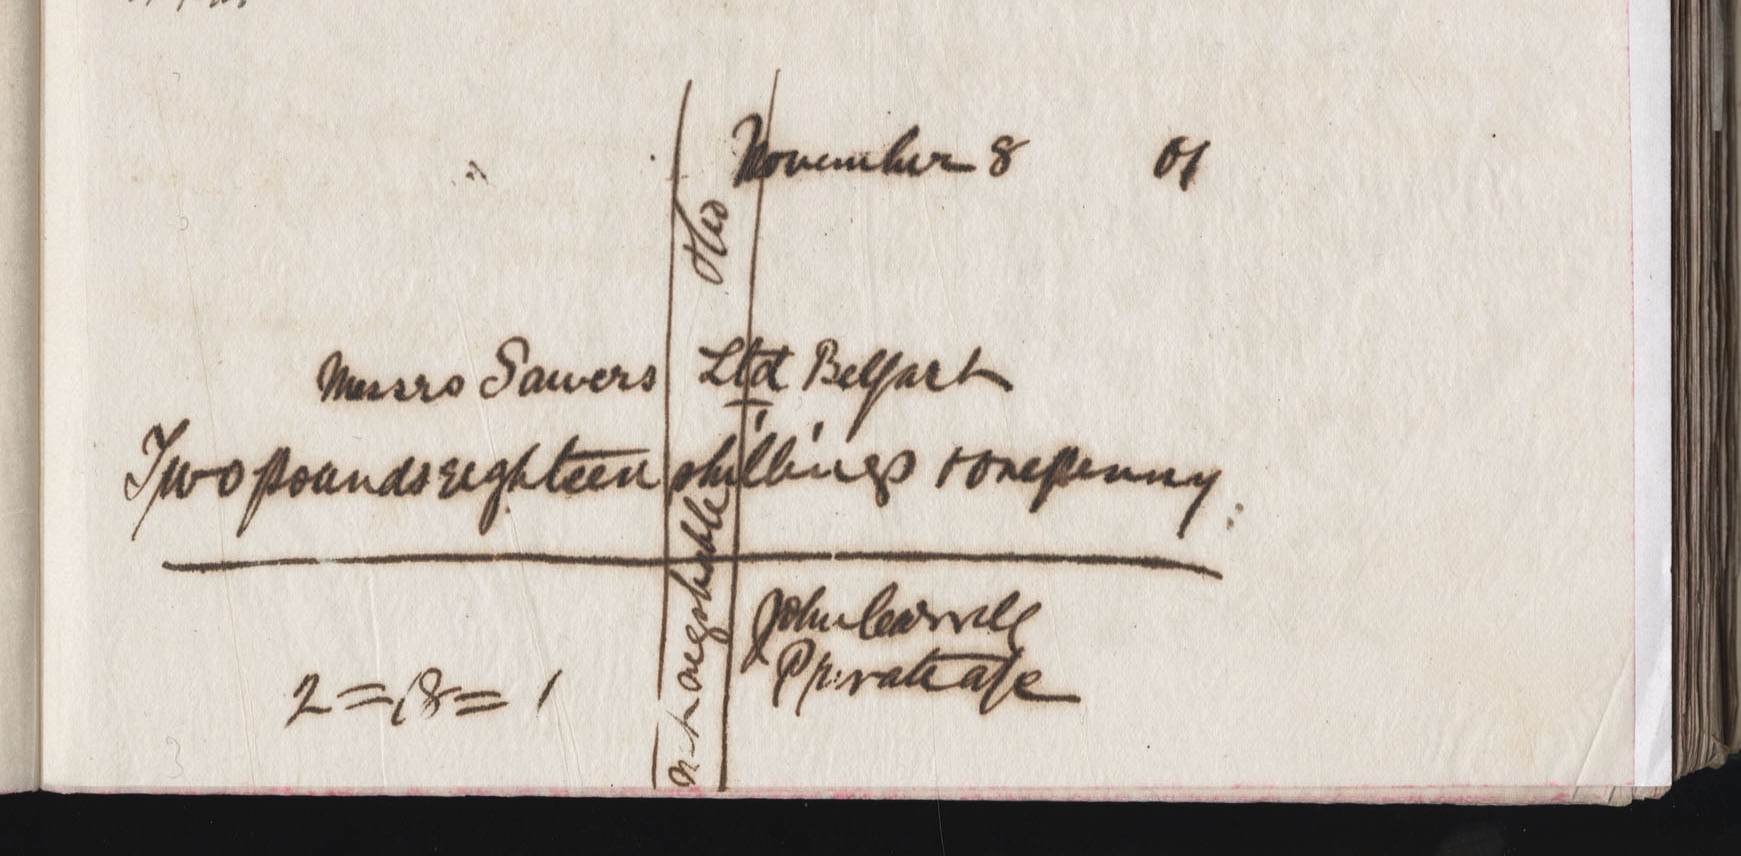 November 8 01
Messrs Sawers Ltd Belfast
Two pounds eighteen shillings & onepenny
2=18=1
John
Private a/c
not negotiable & Co